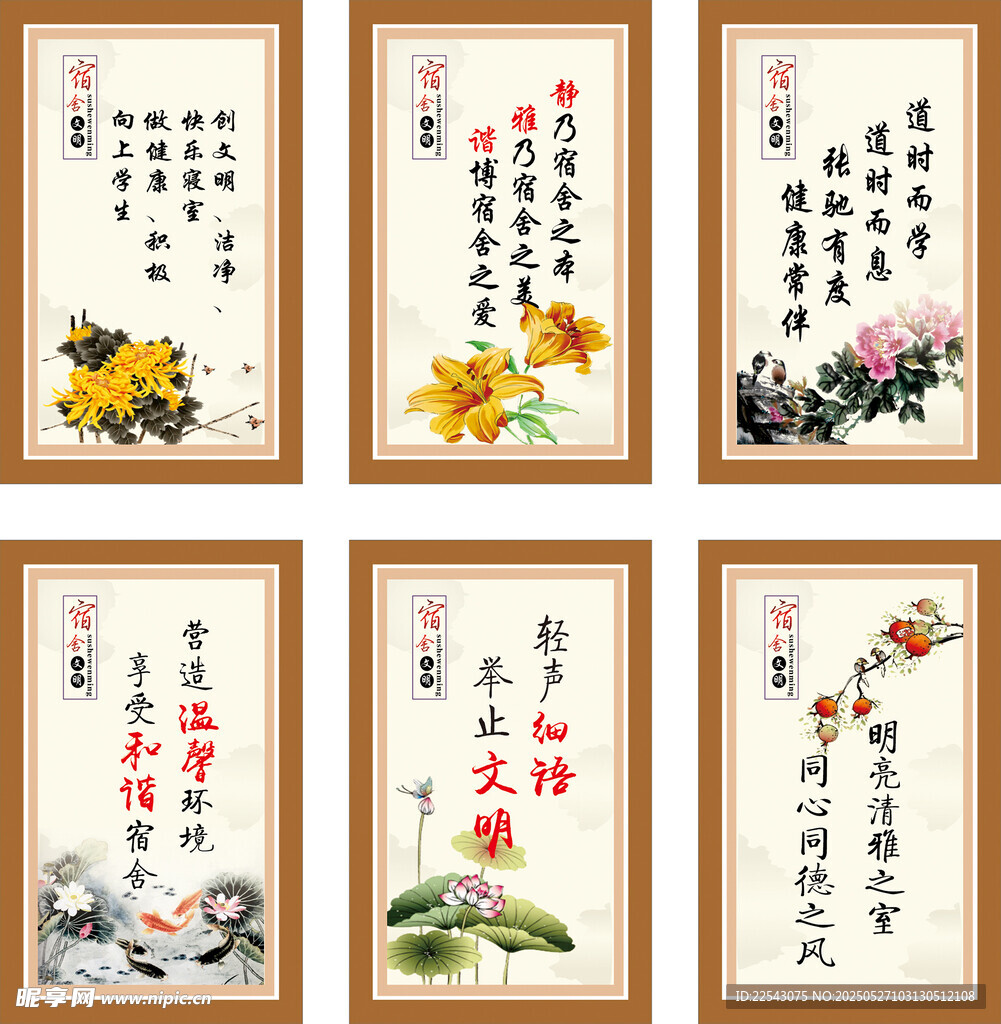 宿舍文明
sushewenming
创文明、洁净、
快乐寝室
做健康、积极
向上学生
宿舍文明
sushewenming
静乃宿舍之本
雅乃宿舍之美
谐博宿舍之爱
宿舍文明
sushewenming
道时而学
道时而息
张驰有度
健康常伴
宿舍文明
sushewenming
营造温馨环境
享受和谐宿舍
宿舍文明
sushewenming
轻声细语
举止文明
宿舍文明
sushewenming
明亮清雅之室
同心同德之风
昵享网 www.nipic.cn
ID:22543075 NO:20250527103130512108